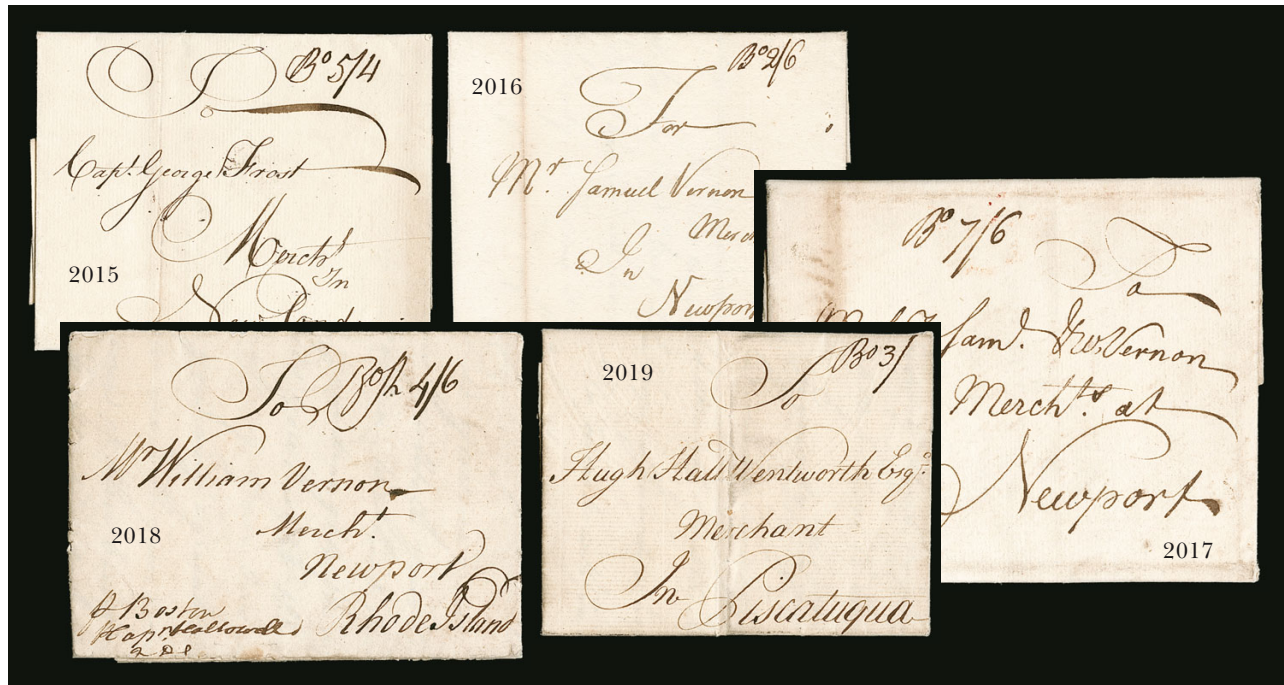 Bo 5/4
To
Capt. George Frost
Mercht
In
2015
Bo 2/6
2016
For
Mr Samuel Vernon
In
Newpor
Bo 7/6
To
Sam. & Wm Vernon
Merchts at
Newport
2017
To Bosn 4/6
Mr William Vernon
Mercht.
2018
Newport
Rhode Island
Boston
2019
Bo 3/
To
Hugh Hall Wentworth Esqr
Merchant
In Piscatuqua